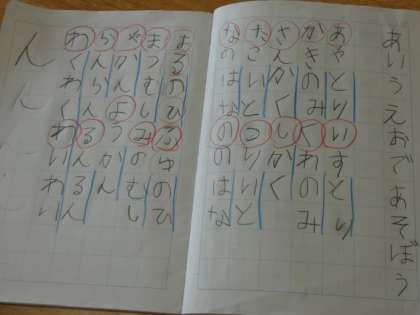 あいうえおであそぼう
あやとりいすとり
かきのみくわのみ
さんかくしかく
たこいとつりいと
なのはなののはな
はるのひふゆのひ
まつむしみのむし
やかんようかん
らんらんるんるん
わくわくわいわい
んん